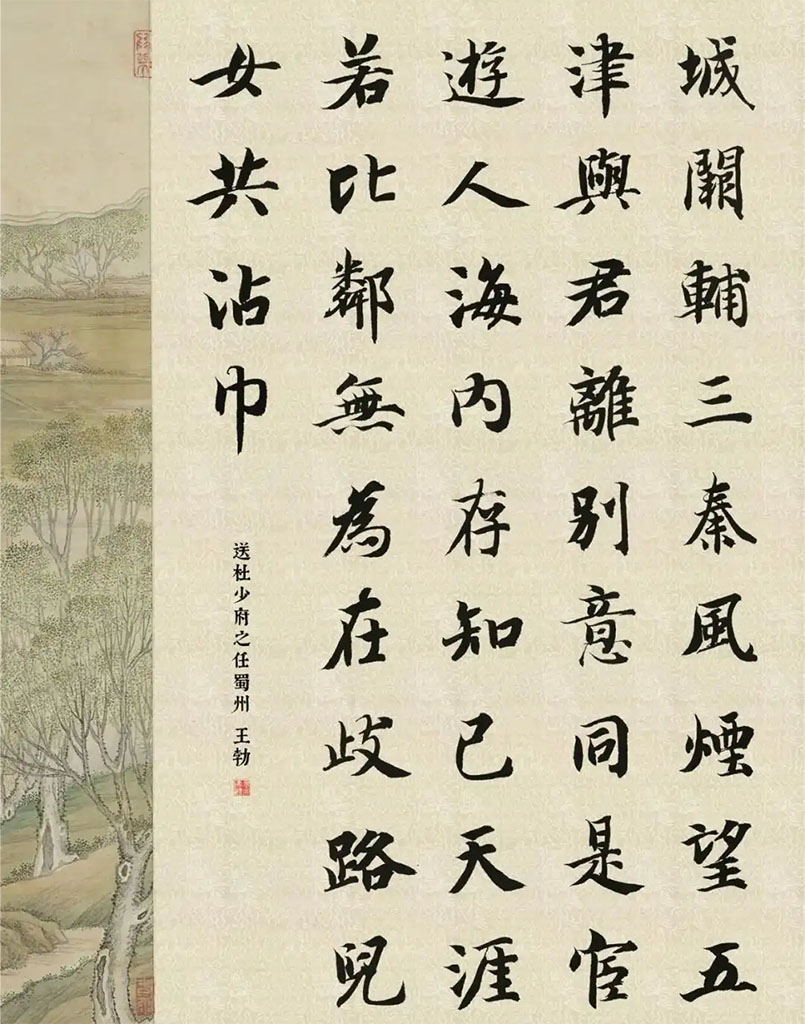 城闕輔三秦風煙望五
津與君離別意同是宦
遊人海内存知己天涯
若比鄰無為在歧路兒
女共沾巾
送杜少府之任蜀州 王勃